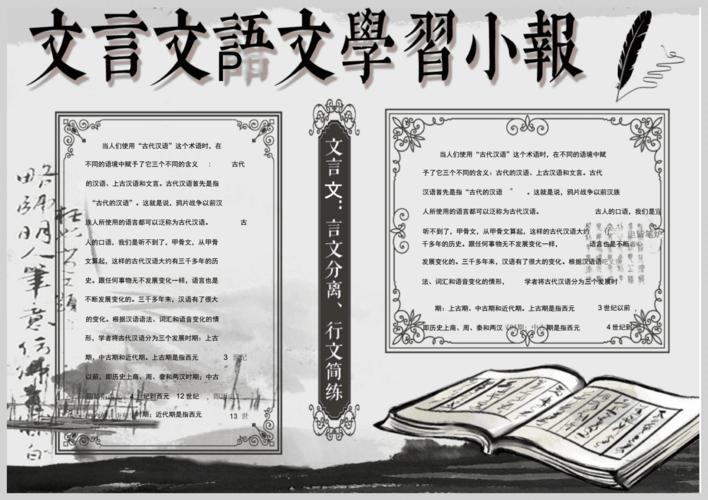 文言文語文學習小報
当人们使用“古代汉语”这个术语时，在
不同的语境中赋予了它三个不同的含义 ： 古代
的汉语、上古汉语和文言。古代汉语首先是指
“古代的汉语”。这就是说，鸦片战争以前汉
族人所使用的语言都可以泛称为古代汉语。 古
人的口语，我们是听不到了，甲骨文，从甲骨
文算起，这样的古代汉语大约有三千多年的历
史。跟任何事物无不发展变化一样，语言也是
不断发展变化的。三千多年来，汉语有了很大
的变化。根据汉语语法、词汇和语音变化的情
形，学者将古代汉语分为三个发展时期：上古
期、中古期和近代期。上古期是指西元 3 世纪
以前，即历史上商、周、秦和两汉时期；中古
纪到西元 12 世纪
时期；近代期是指西元 13 世
文言文：言文分离、行文简练
当人们使用“古代汉语”这个术语时，在不同的语境中赋
予了它三个不同的含义：古代的汉语、上古汉语和文言。古代
汉语首先是指“古代的汉语 ”。这就是说，鸦片战争以前汉族
人所使用的语言都可以泛称为古代汉语。 古人的口语，我们是
听不到了，甲骨文，从甲骨文算起，这样的古代汉语大约
千多年的历史。跟任何事物无不发展变化一样， 语言也是不断
发展变化的。三千多年来，汉语有了很大的变化。根据汉语语
法、词汇和语音变化的情形， 学者将古代汉语分为三个发展时
期：上古期、中古期和近代期。上古期是指西元 3 世纪以前
即历史上商、周、秦和两汉 4 世纪到